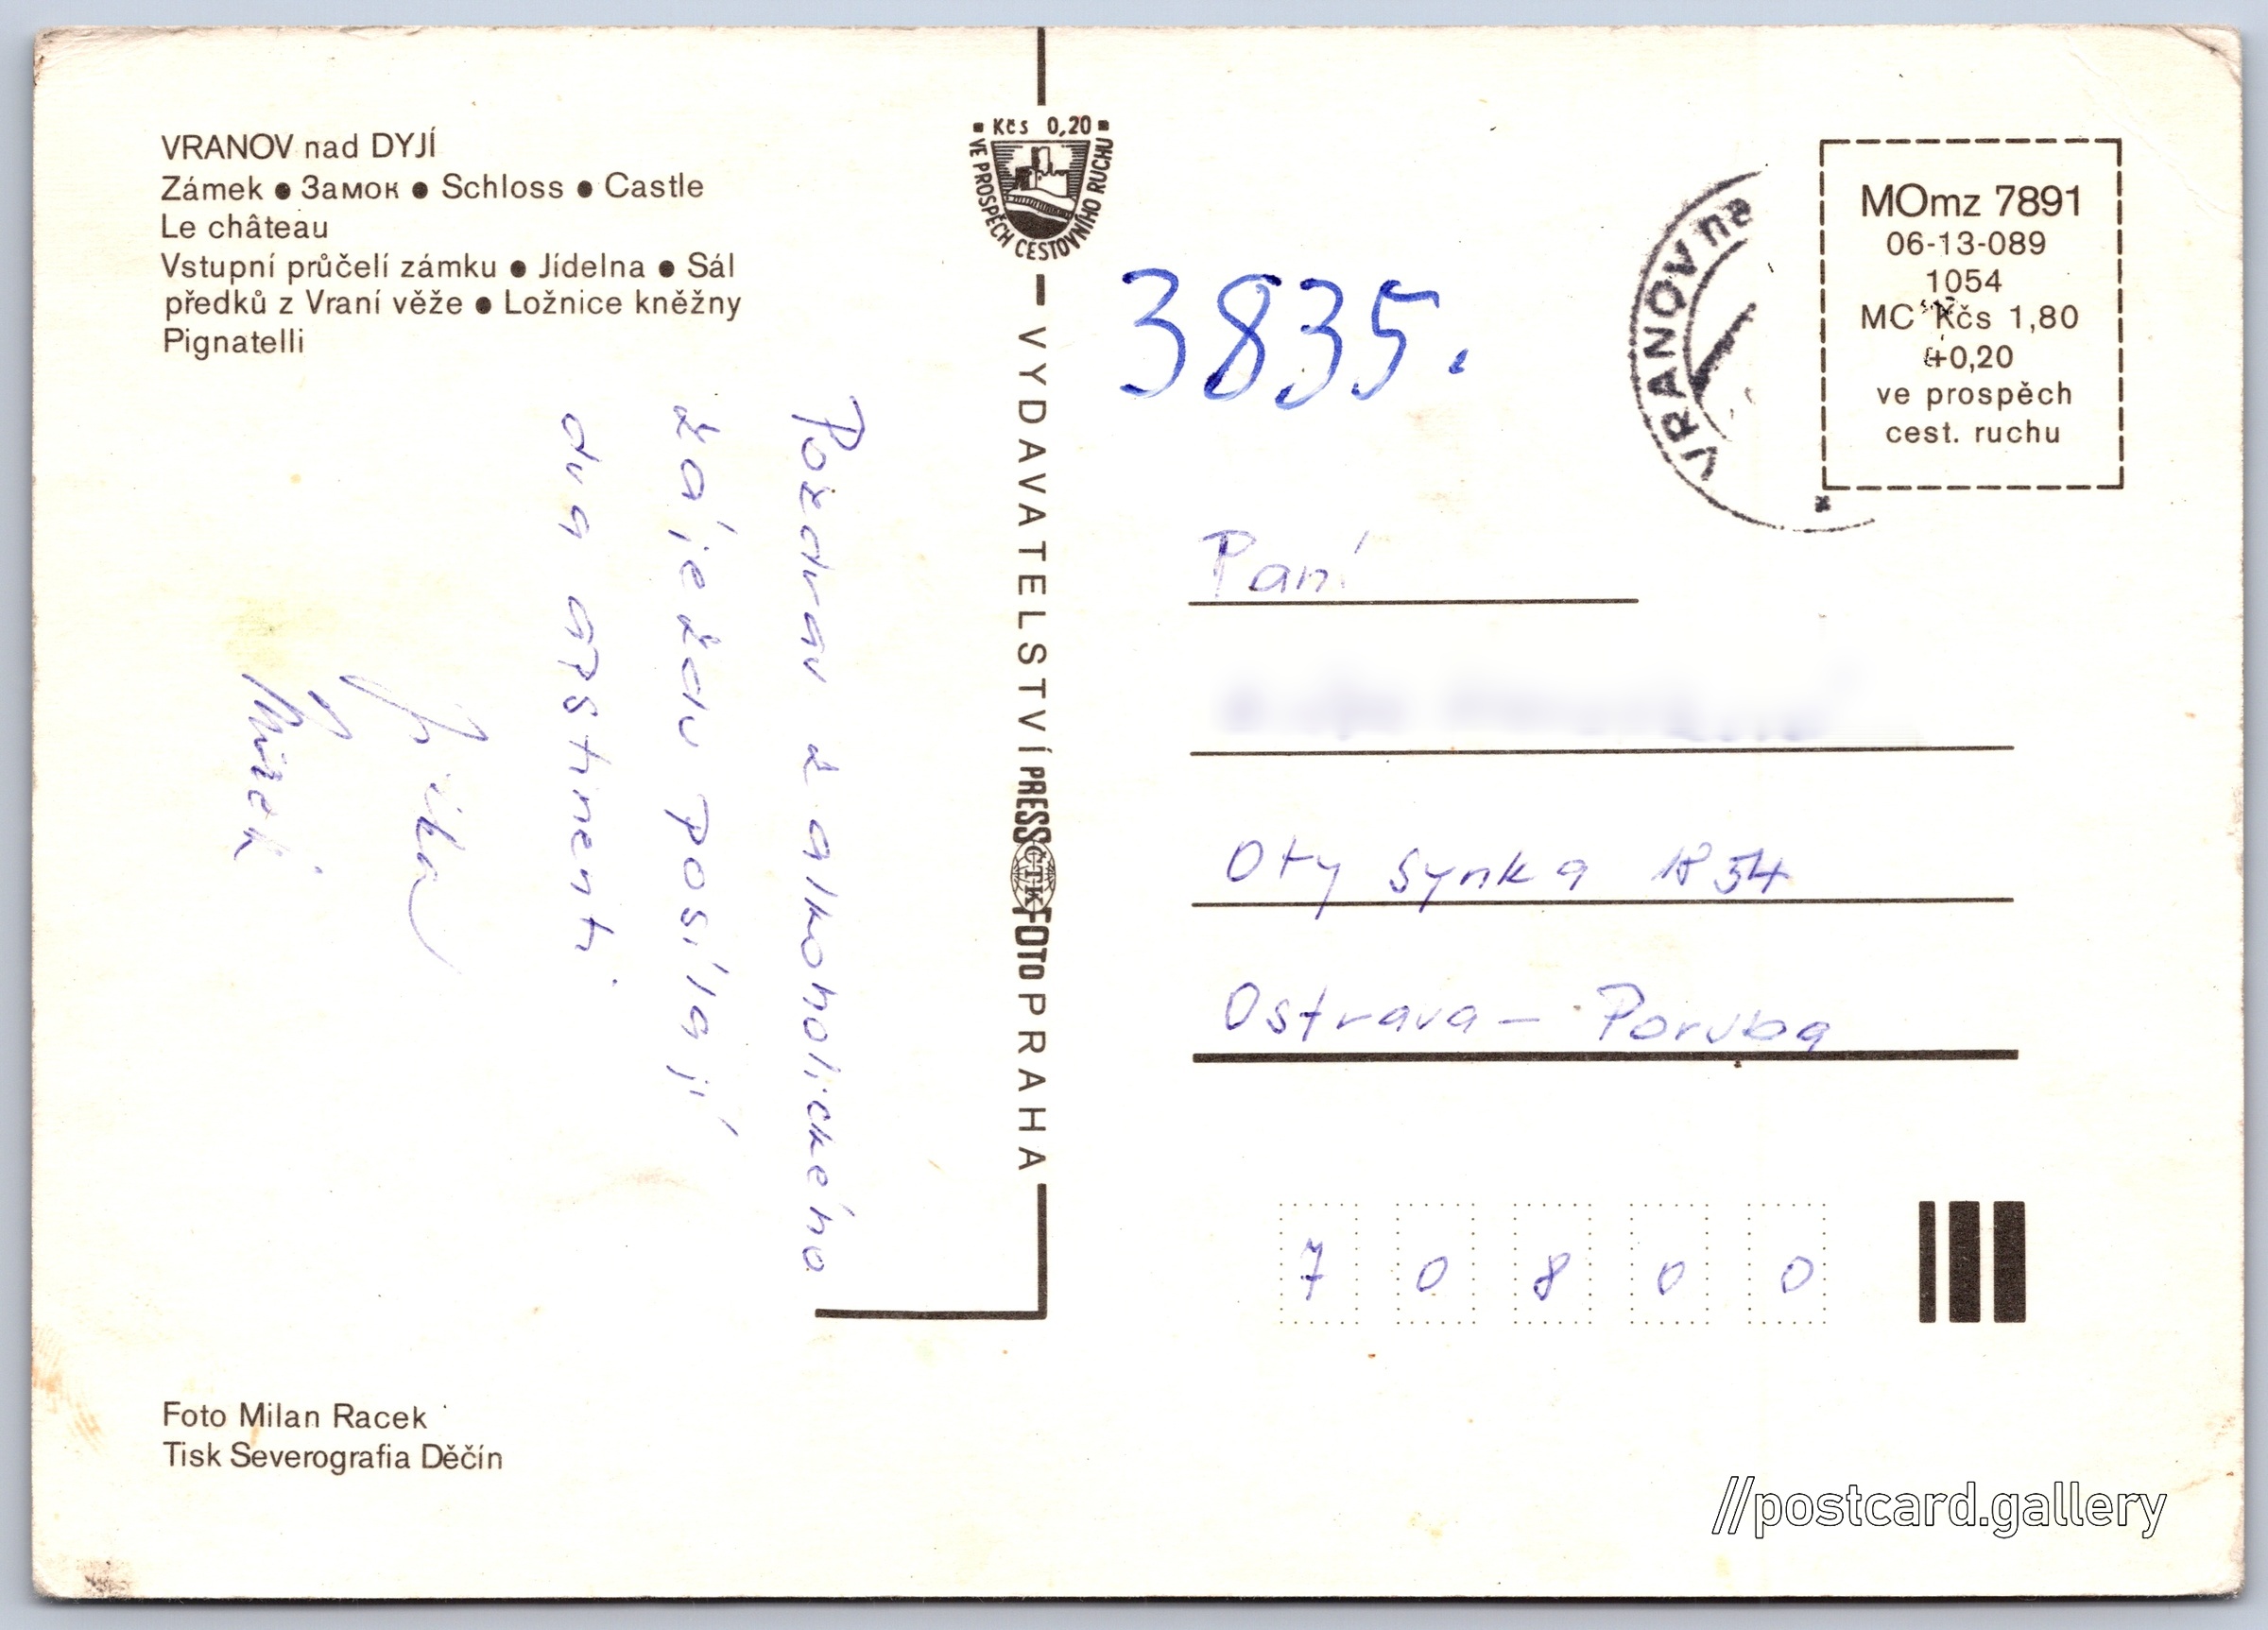 VRANOV nad DYJÍ
Zámek ● Замок ● Schloss ● Castle
Le château
Vstupní průčelí zámku ● Jídelna ● Sál
předků z Vraní věže ● Ložnice kněžny
Pignatelli
Pozdrav z alkoholického
zájezdu posílají
dva apstinenti
Jirka
Mirek
Foto Milan Racek
Tisk Severografia Děčín
Kčs 0,20
VE PROSPĚCH CESTOVNÍHO RUCHU
VYDAVATELSTVÍ PRESSFOTO PRAHA
ČTK
3835.
VRANOV na
MOmz 7891
06-13-089
1054
MC Kčs 1,80
+0,20
ve prospěch
cest. ruchu
Paní
Oty Synka 1854
Ostrava - Poruba
7 0 8 0 0
//postcard.gallery